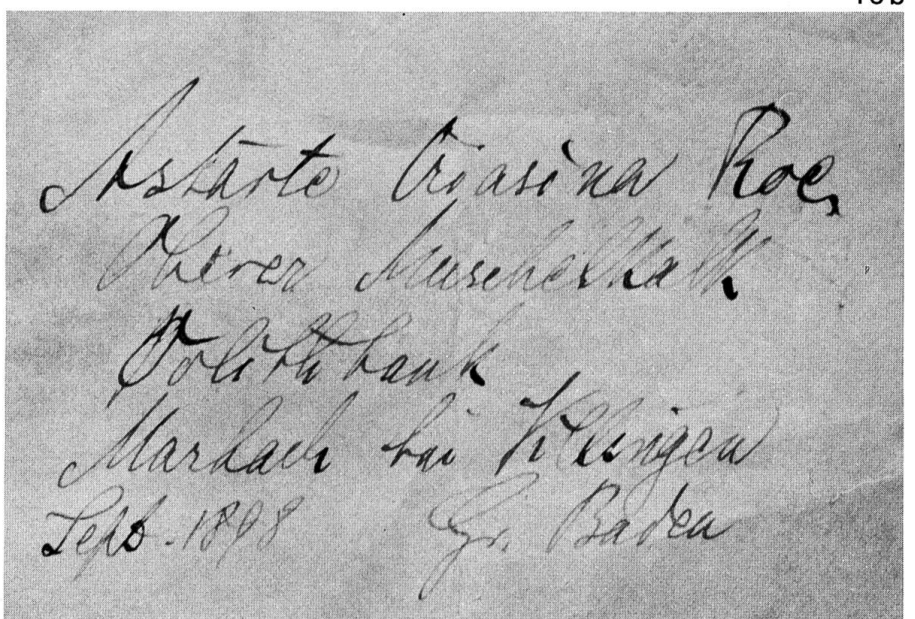 Astarte triasina Roe.
Oberer Muschelkalk
Oolithbank
Marbach bei Villingen
Sept. 1898 Gr. Baden